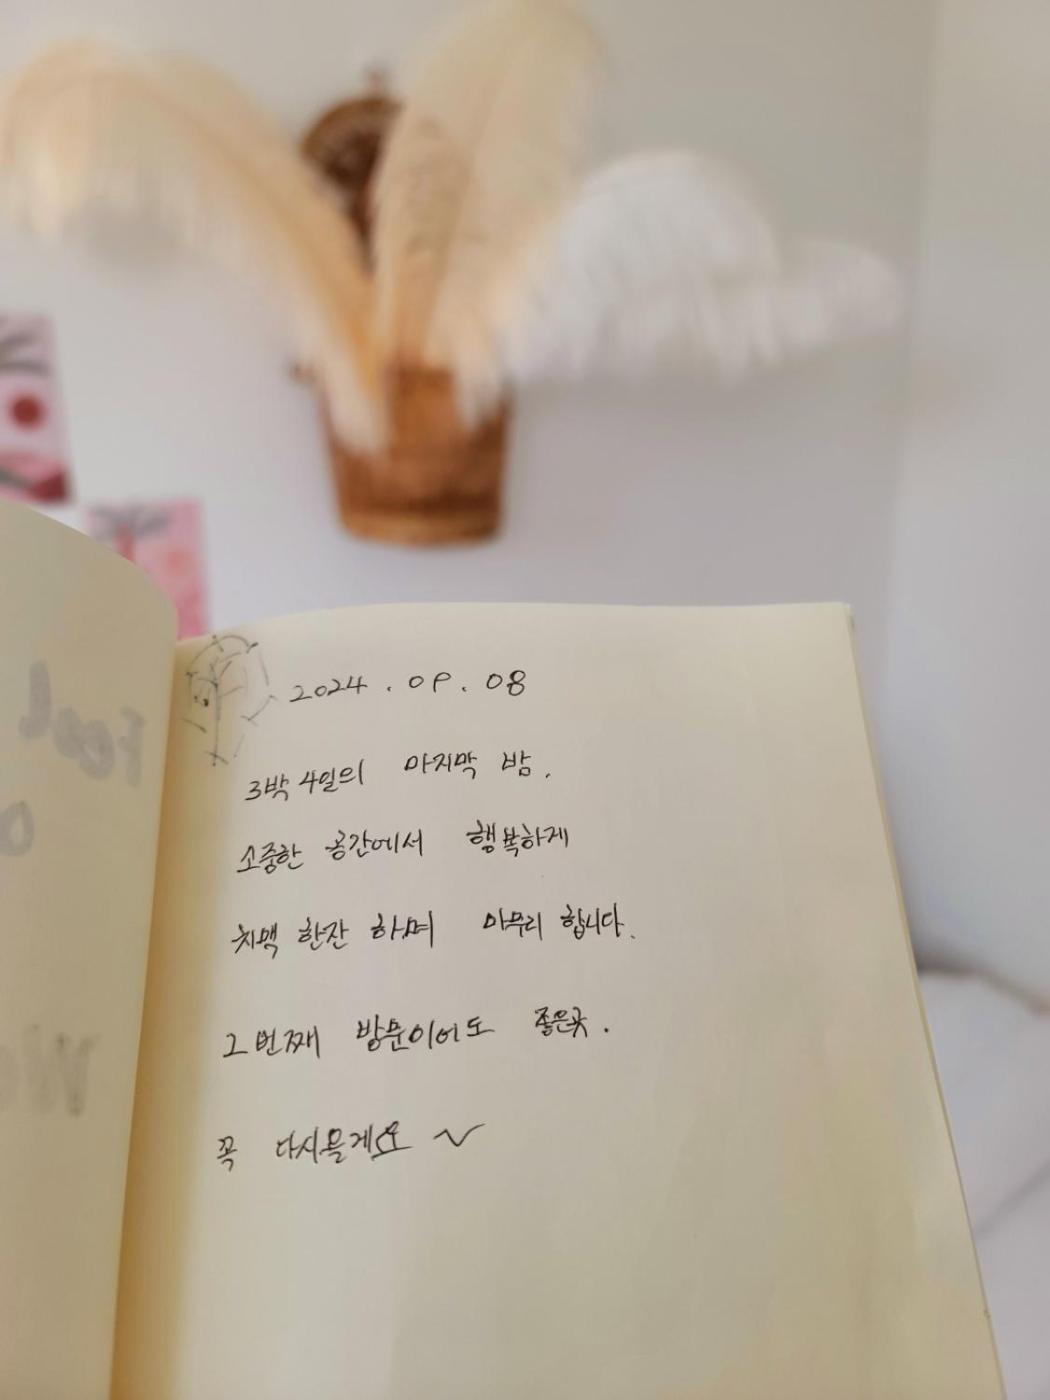 2024.09.08
3박 4일의 마지막 밤.
소중한 공간에서 행복하게
치맥 한잔 하며 마무리 합니다.
2번째 방문이어도 좋은곳.
꼭 다시올게요 ~
Feel